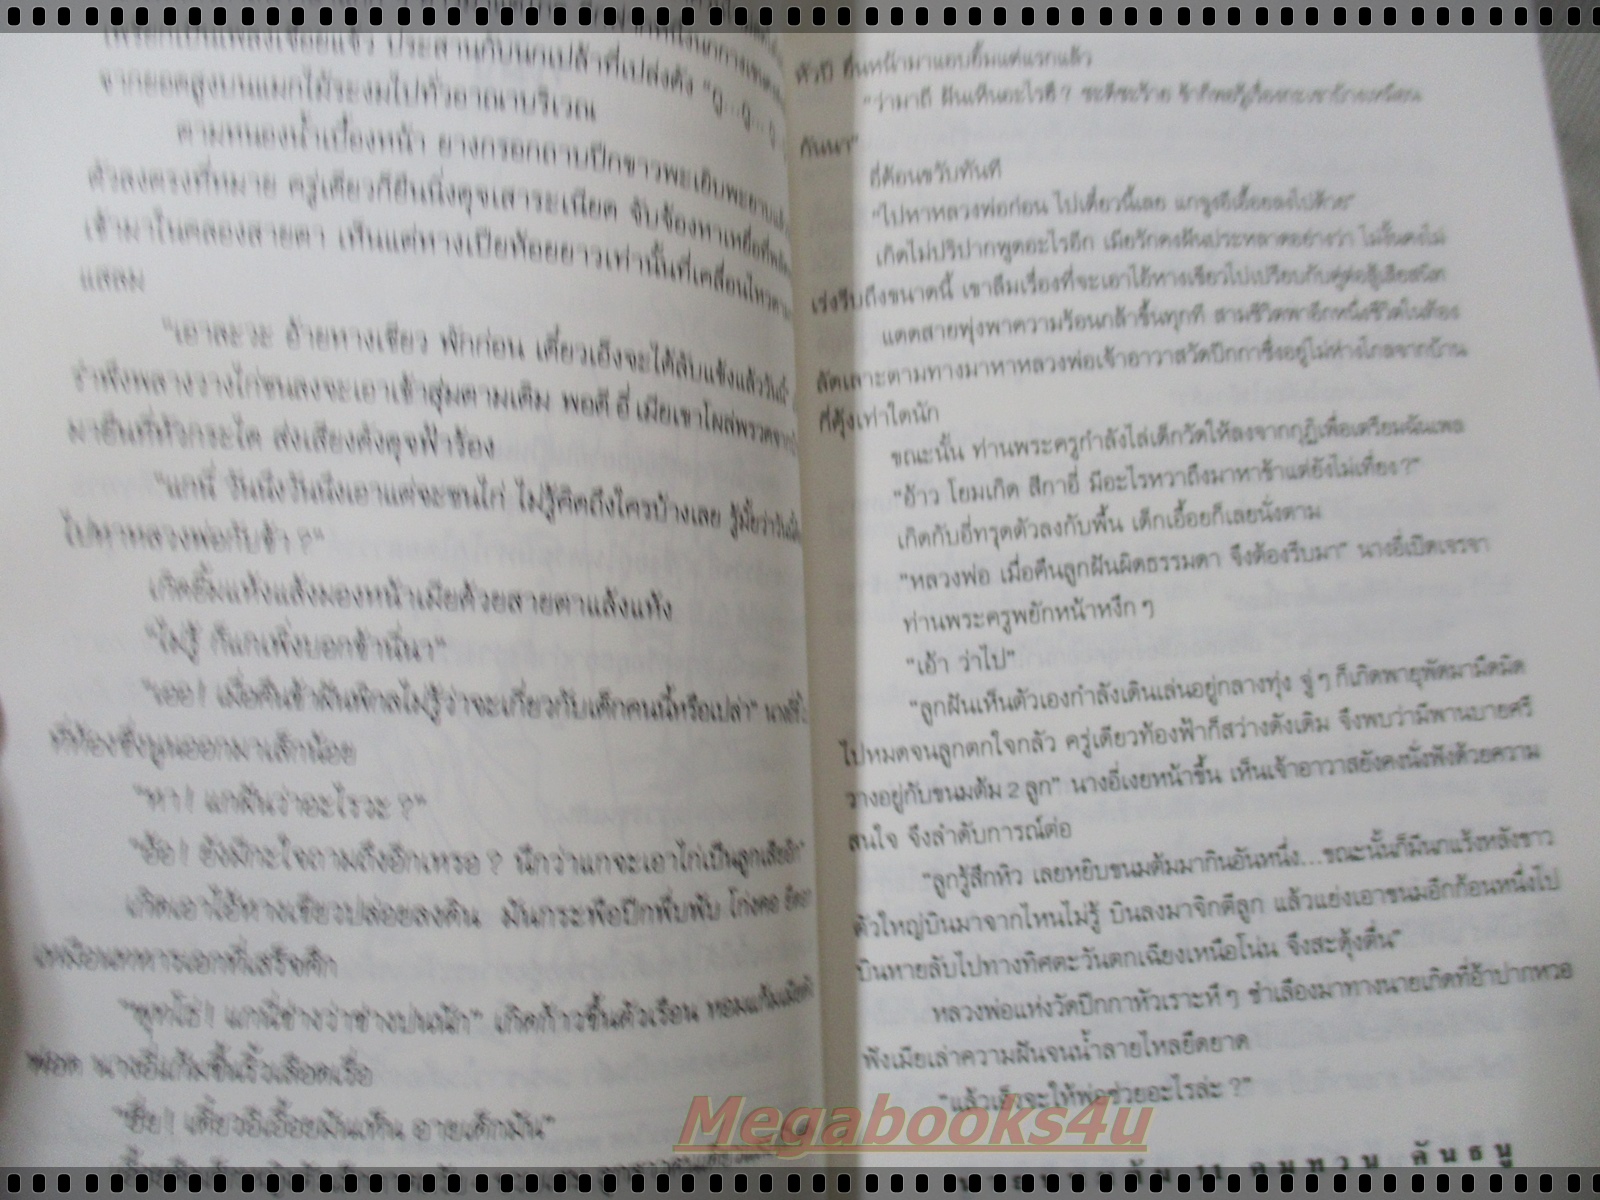 เพรียกเป็นเพลงเจื้อยแจ้ว ประสานกับนกเปล้าที่เปล่งดัง "กู...กู...กู
จากยอดสูงบนแมกไม้ระงมไปทั่วอาณาบริเวณ
ตามหนองน้ำเบื้องหน้า ยางกรอกถาบปีกขาวพะเยิบพะยาบแล้ว
ตัวลงตรงที่หมาย ครู่เดียวก็ยืนนิ่งดุจเสาระเนียด จับจ้องหาเหยื่อที่พลัด
เข้ามาในคลองสายตา เห็นแต่หางเปียห้อยยาวเท่านั้นที่เคลื่อนไหวตาม
แสลม
"เอาละวะ อ้ายหางเขียว พักก่อน เดี๋ยวเอ็งจะได้ลับแข้งแล้ววันนี้"
รำพึงพลางวางไก่ชนลงจะเอาเข้าสุ่มตามเดิม พอดี อี่ เมียเขาโผล่พรวดจาก
มายืนที่หัวกระได ส่งเสียงดังดุจฟ้าร้อง
"แกนี่ วันนึงวันนึงเอาแต่จะชนไก่ ไม่รู้คิดถึงใครบ้างเลย รู้มั้ยว่าวันนี้
ไปหาหลวงพ่อกับข้า ?"
เกิดยิ้มแห้งแล้งมองหน้าเมียด้วยสายตาแล้งแห้ง
"ไม่รู้ ก็แกเพิ่งบอกข้านี่นา"
"เออ! เมื่อคืนข้าฝันพิกลไม่รู้ว่าจะเกี่ยวกับเด็กคนนี้หรือเปล่า" นางชี้
ที่ท้องซึ่งนูนออกมาเล็กน้อย
"หา! แกฝันว่าอะไรวะ ?"
"ฮ้อ! ยังมีกะใจถามถึงอีกเหรอ ? นึกว่าแกจะเอาไก่เป็นลูกเสียอีก"
เกิดเอาไอ้หางเขียวปล่อยลงดิน มันกระพือปีกพั่บพับ โก่งคอ ยืด
เหมือนทหารเอกที่เสร็จศึก
"พุทโธ่! แกนี่ช่างว่าช่างปนนัก" เกิดก้าวขึ้นตัวเรือน หอมแก้มเมีย
ฟอด นางอี่แก้มขึ้นริ้วเลือดเรื่อ
"ฮึ่ย! เดี๋ยวอีเอื้อยมันเห็น อายเด็กมัน"
หัวปี ยื่นหน้ามาแอบยิ้มแต่แรกแล้ว
"ว่ามาถี ฝันเห็นอะไรฮึ ?
กันนา"
อี่ค้อนขวับทันที
"ไปหาหลวงพ่อก่อน ไปเดี๋ยวนี้เลย แกจูงอีเอื้อยลงไปด้วย"
เกิดไม่ปริปากพูดอะไรอีก เมียรักคงฝันประหลาดอย่างว่า ไม่งั้นคงไม่
เร่งรีบถึงขนาดนี้ เขาลืมเรื่องที่จะเอาไอ้หางเขียวไปเปรียบกับคู่ต่อสู้เสียสนิท
แดดสายพุ่งพาความร้อนกล้าขึ้นทุกที สามชีวิตพาอีกหนึ่งชีวิตในท้อง
ลัดเลาะตามทางมาหาหลวงพ่อเจ้าอาวาสวัดปึกกาซึ่งอยู่ไม่ห่างไกลจากบ้าน
กี่คุ้งเท่าใดนัก
ขณะนั้น ท่านพระครูกำลังไล่เด็กวัดให้ลงจากกุฏิเพื่อเตรียมฉันเพล
"อ้าว โยมเกิด สีกาอี่ มีอะไรหวาถึงมาหาข้าแต่ยังไม่เที่ยง ?"
เกิดกับอี่ทรุดตัวลงกับพื้น เด็กเอื้อยก็เลยนั่งตาม
"หลวงพ่อ เมื่อคืนลูกฝันผิดธรรมดา จึงต้องรีบมา" นางอี่เปิดเจรจา
ท่านพระครูพยักหน้าหงึก ๆ
"เอ้า ว่าไป"
"ลูกฝันเห็นตัวเองกำลังเดินเล่นอยู่กลางทุ่ง จู่ ๆ ก็เกิดพายุพัดมามืดมิด
ไปหมดจนลูกตกใจกลัว ครู่เดียวท้องฟ้าก็สว่างดังเดิม จึงพบว่ามีพานบายศรี
วางอยู่กับขนมต้ม 2 ลูก" นางอี่เงยหน้าขึ้น เห็นเจ้าอาวาสยังคงนั่งฟังด้วยความ
สนใจ จึงลำดับการณ์ต่อ
"ลูกรู้สึกหิว เลยหยิบขนมต้มมากินอันหนึ่ง...ขณะนั้นก็มีนกแร้งหลังขาว
ตัวใหญ่บินมาจากไหนไม่รู้ บินลงมาจิกตีลูก แล้วแย่งเอาขนมอีกก้อนหนึ่งไป
บินหายลับไปทางทิศตะวันตกเฉียงเหนือโน่น จึงสะดุ้งตื่น"
หลวงพ่อแห่งวัดปึกกาหัวเราะหึ ๆ ชำเลืองมาทางนายเกิดที่อ้าปากหวอ
ฟังเมียเล่าความฝันจนน้ำลายไหลยืดยาด
"แล้วเอ็งจะให้พ่อช่วยอะไรล่ะ ?"
Megabooks4u